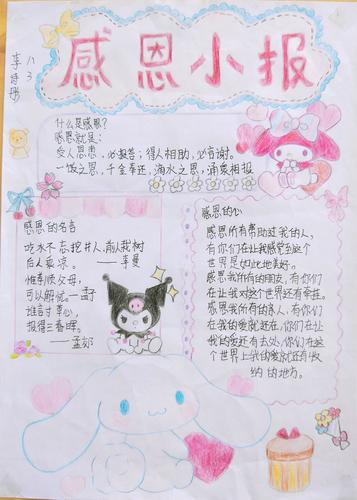 感恩小报
八3
李诗彤
什么是感恩?
感恩就是:
受人恩惠,必报答;得人相助,必言谢。
一饭之恩,千金奉还,滴水之恩,涌泉相报
感恩的名言
吃水不忘挖井人,前人栽树
后人乘凉。——李曼
惟孝顺父母,
可以解忧。—孟子
谁言寸草心,
报得三春晖。
——孟郊
感恩的心
感恩所有帮助过我的人,
有你们在让我感觉到这个
世界是如此地美好。
感恩我所有的朋友,有你们
在让我对这个世界还有牵挂。
感恩我所有的家人,有你们
在我的爱就还在,你们在让
我的爱还有去处,你们在这
个世界上我的爱就还有收
纳的地方。